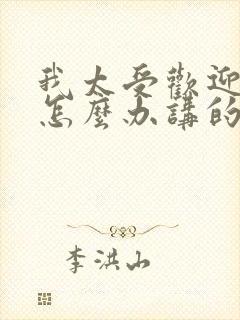 我太受歡迎
怎麼办講的
李洪山